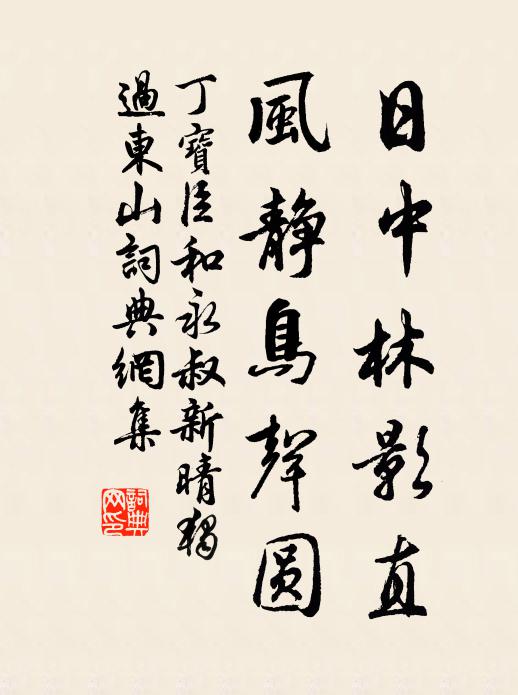 日中林影直
風静鳥聲圆
丁寶臣和永叔新晴獨
過東山詞典網集
詞典网印